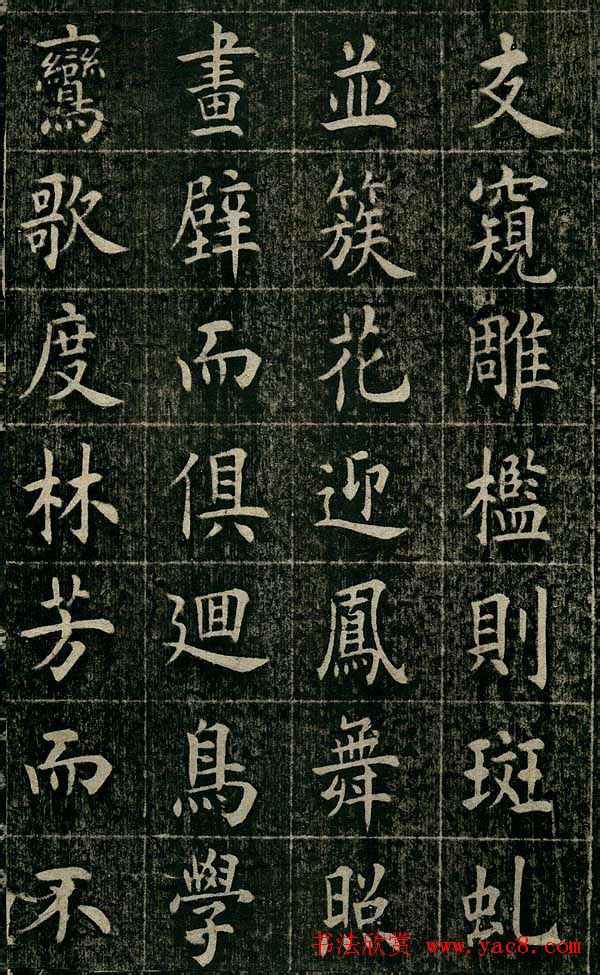 友窺雕檻則斑虬
並簇花迎鳳舞照
畫壁而俱廻鳥學
鸞歌度林芳而不
书法欣赏 www.yac8.com